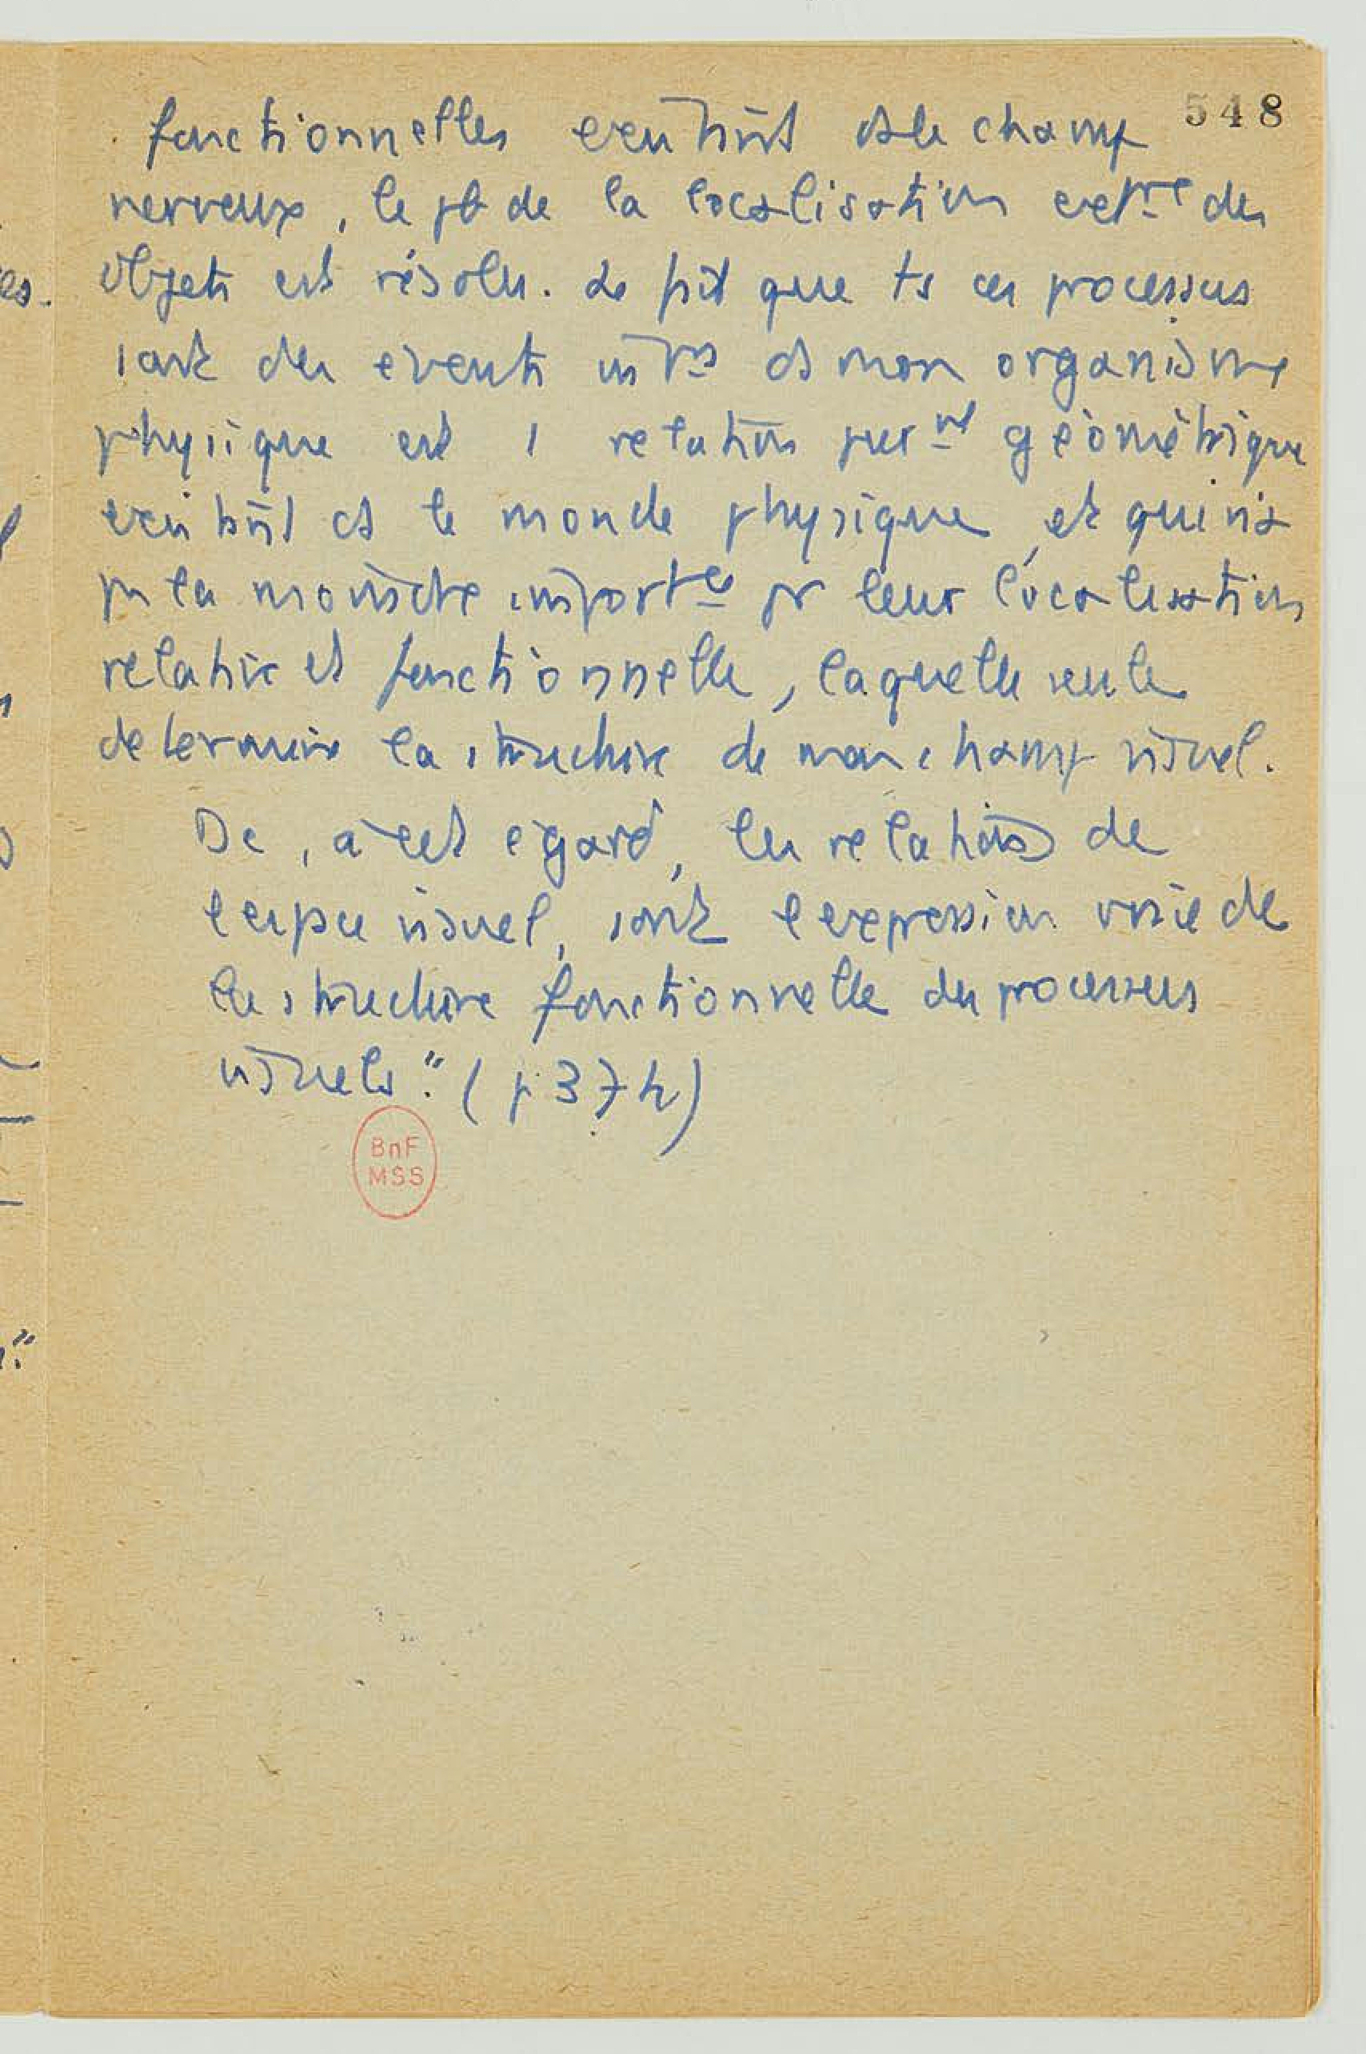 548
fonctionnelles existent ds le champ
nerveux, le pb de la localisation ext^re des
objets est résolu. Le fait que ts ces processus
sont des events int^rs ds mon organisme
physique est 1 relation pur^nt géométrique
existant ds le monde physique, et qui n'a
pas la moindre import^ce pr leur localisation
relative et fonctionnelle, laquelle seule
determine la structure de mon champ visuel.
Dc, à cet égard, les relations de
l'espace visuel, sont l'expression vraie de
la structure fonctionnelle des processus
visuels." (p 374)
BnF
MSS
es.